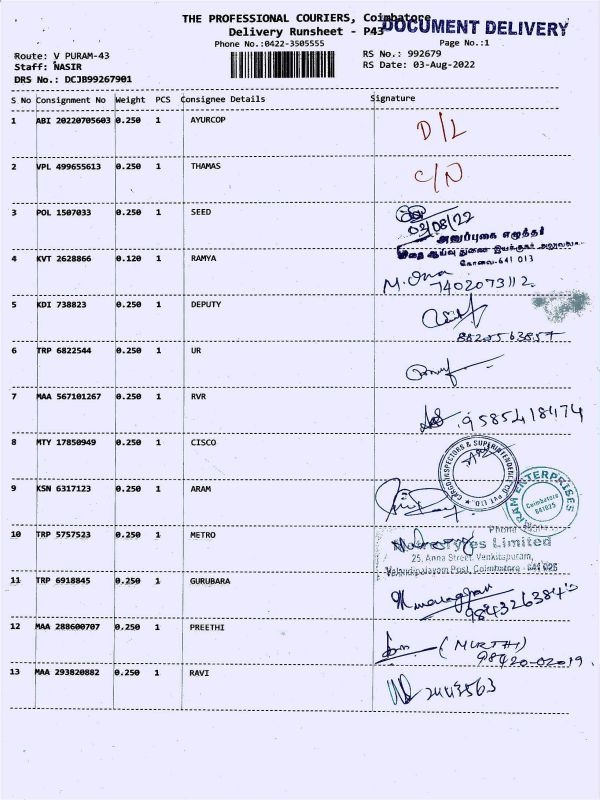 THE PROFESSIONAL COURIERS, Coimbatore
DOCUMENT DELIVERY
Delivery Runsheet - P43
Phone No.:0422-3505555
Page No.:1
Route: V PURAM-43
RS No.: 992679
Staff: NASIR
RS Date: 03-Aug-2022
DRS No.: DCJB99267901
S No Consignment No Weight PCS Consignee Details Signature
1 ABI 20220705603 0.250 1 AYURCOP D/L
2 VPL 499655613 0.250 1 THAMAS C/N
3 POL 1507033 0.250 1 SEED
02/08/22
அனுப்புகை எழுத்தர்
கோவை-641 013
4 KVT 2628866 0.120 1 RAMYA
7402073112
5 KDI 738823 0.250 1 DEPUTY
8820563857
6 TRP 6822544 0.250 1 UR
7 MAA 567101267 0.250 1 RVR
9585418474
8 MTY 17850949 0.250 1 CISCO
9 KSN 6317123 0.250 1 ARAM
ENTERPRISES
Coimbatore
641025
10 TRP 5757523 0.250 1 METRO
Phone
Limited
25, Anna Street, Venkitapuram,
Velandipalayam Post, Coimbatore - 641 025
11 TRP 6918845 0.250 1 GURUBARA
12 MAA 288600707 0.250 1 PREETHI
(MURTHI)
98420-02019
13 MAA 293820882 0.250 1 RAVI
2443563